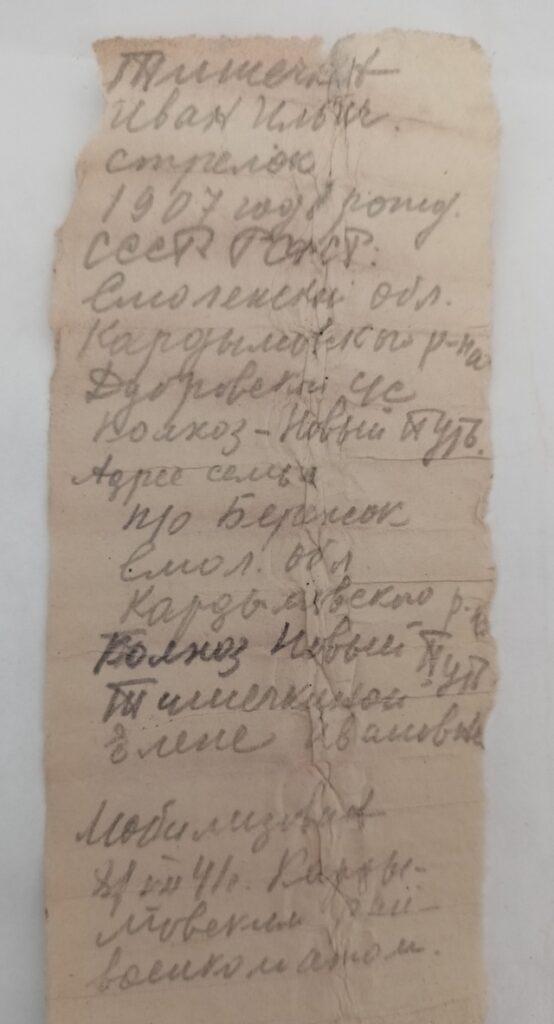 Тимечкин
Иван Ильич.
стрелок
1907 года рожд.
СССР РСФСР.
Смоленской обл.
Кардымовского р-на
Дубровский с/с
Колхоз-Новый Путь.
Адрес семьи
п/о Бережок
Смол. Обл
Кардымовского р-н
Колхоз Новый Путь
Тимечкиной
Елене Ивановне
Мобилизован
41г. Карды-
мовским рай-
военкоматом.